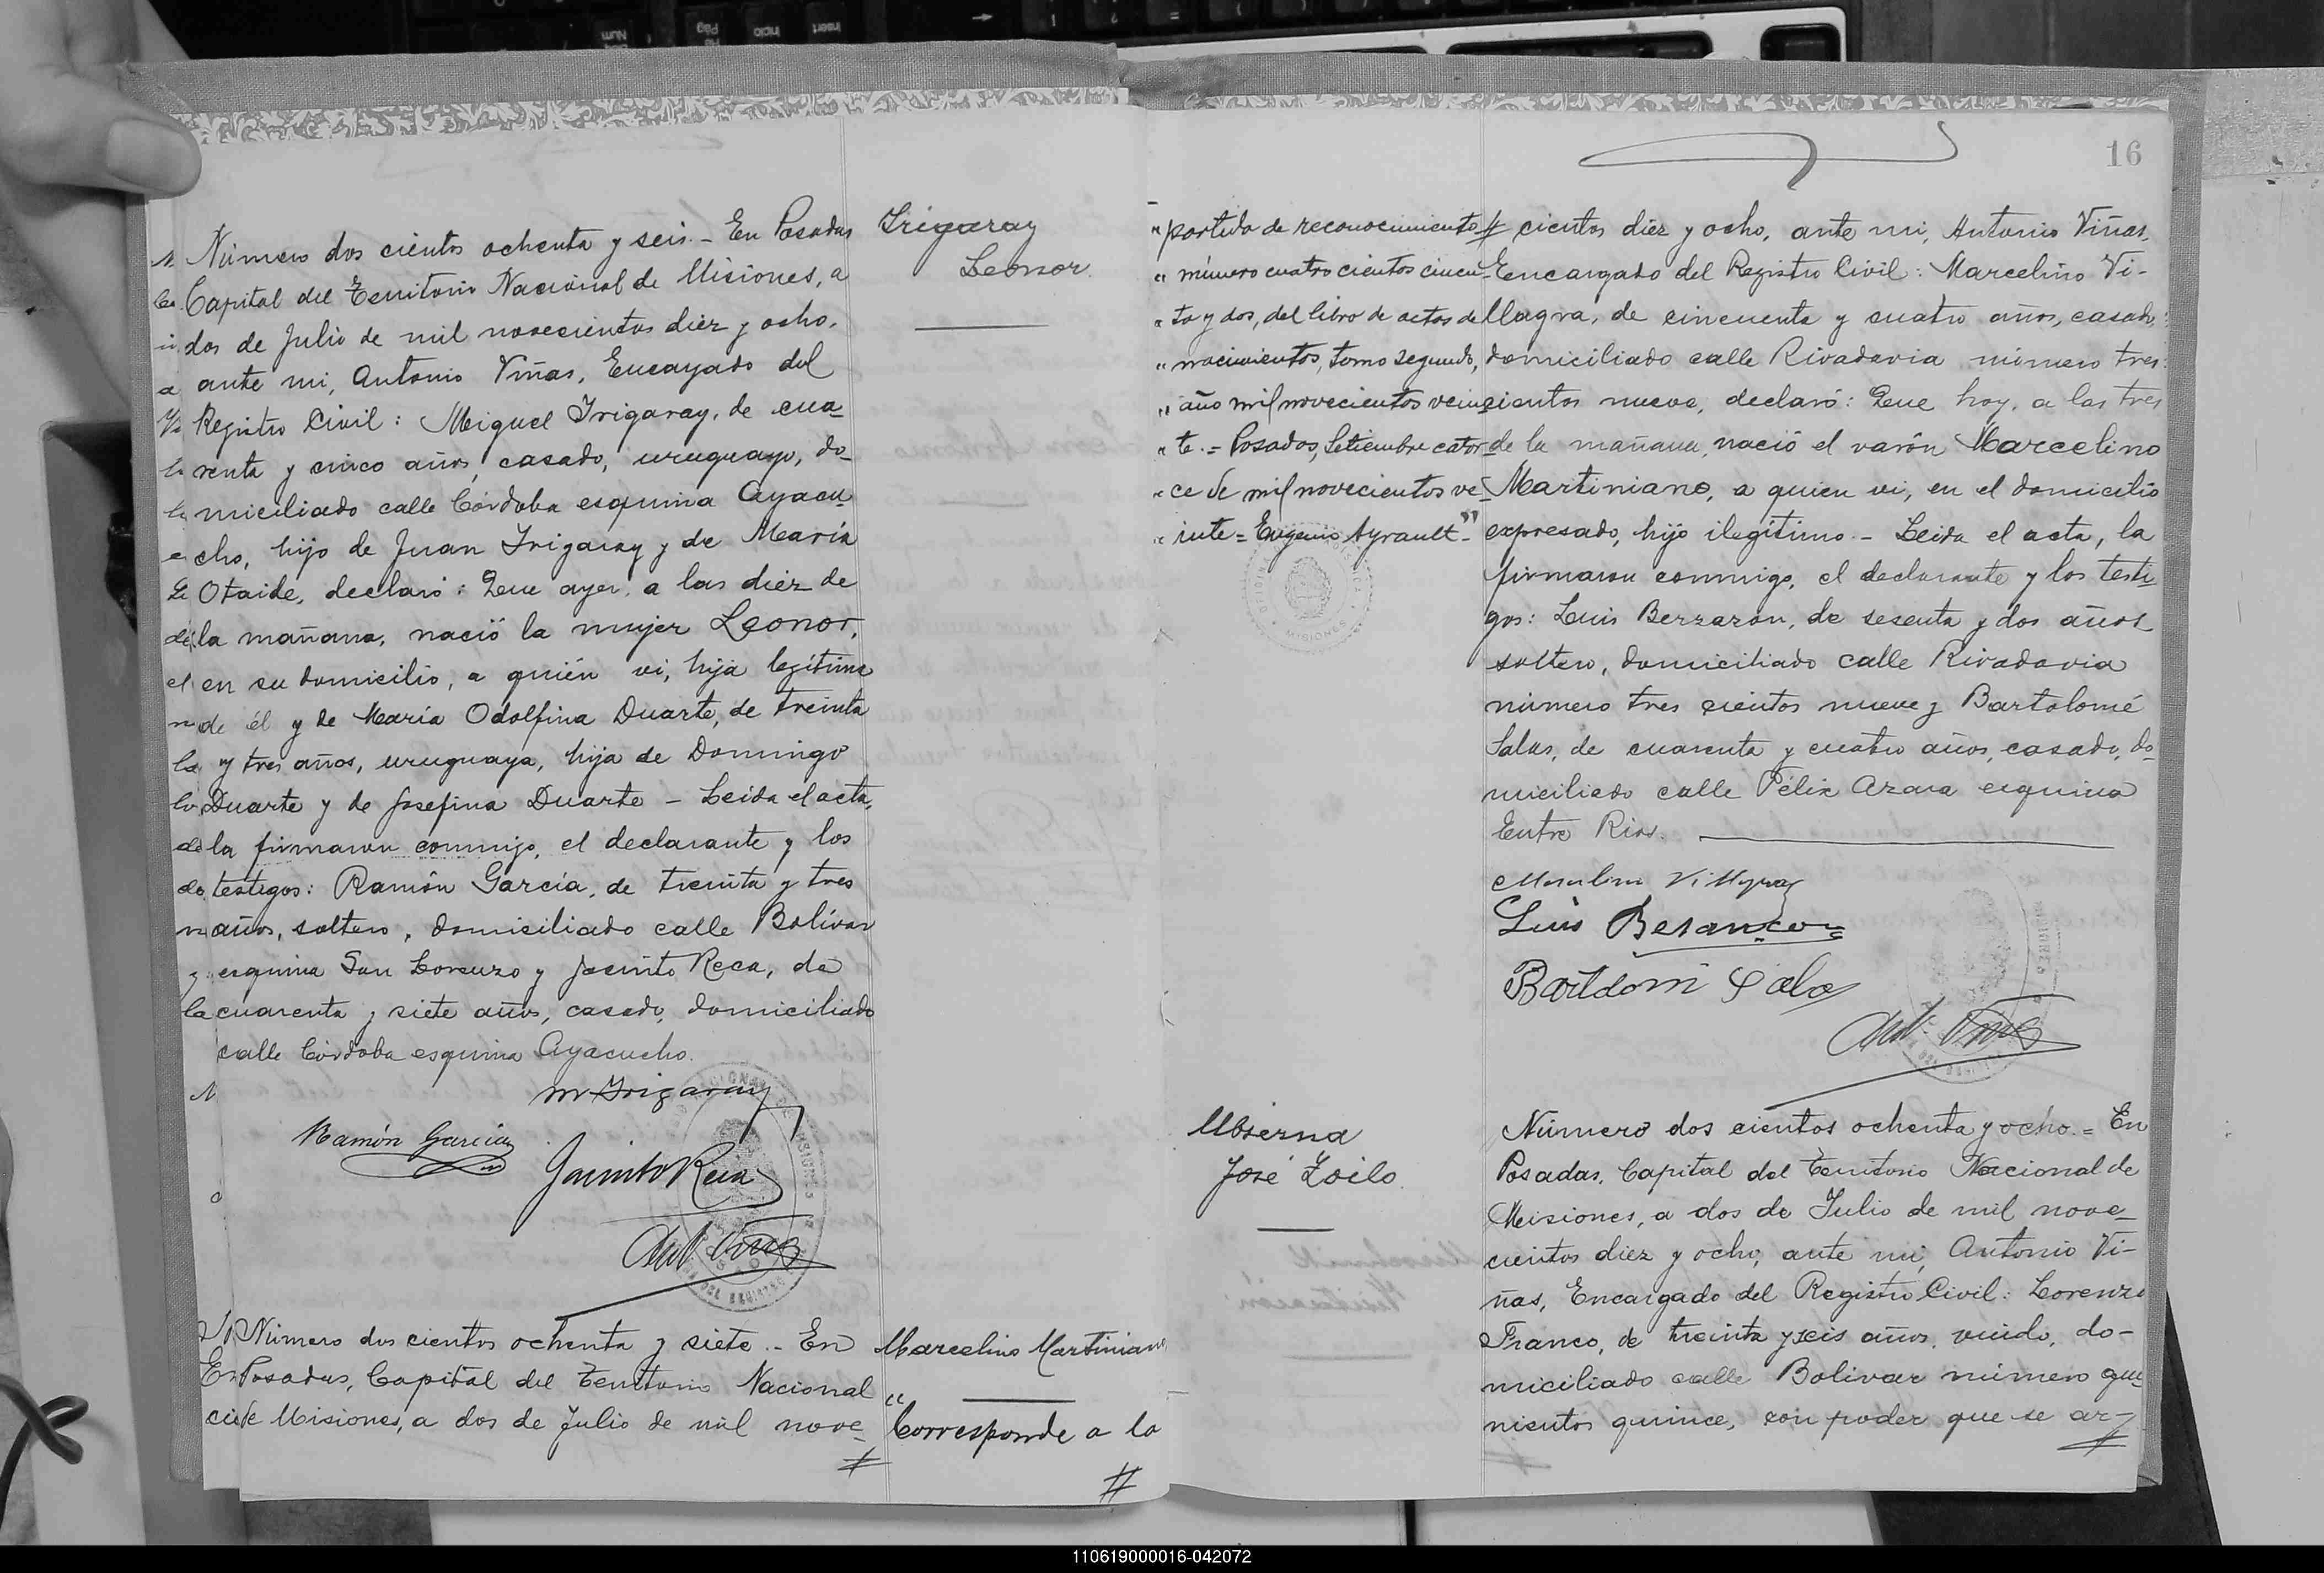 Número dos cientos ochenta y seis. - En Posadas
Capital del Territorio Nacional de Misiones, a
dos de Julio de mil novecientos diez y ocho,
ante mi, Antonio Viñas, Encargado del
Registro Civil: Miguel Irigaray, de cua_
renta y cinco años, casado, uruguayo, do_
miciliado calle Córdoba esquina Ayacu_
cho, hijo de Juan Irigaray y de María
Otaide, declaró: Que ayer, a las diez de
la mañana, nació la mujer Leonor,
en su domicilio, a quién vi, hija legítima
de él y de María Odolfina Duarte, de treinta
y tres años, uruguaya, hija de Domingo
Duarte y de Josefina Duarte - Leida el acta,
la firmaron conmigo, el declarante y los
testigos: Ramón García, de treinta y tres
años, soltero, domiciliado calle Bolívar
esquina San Lorenzo y Jacinto Reca, de
cuarenta y siete años, casado, domiciliado
calle Córdoba esquina Ayacucho.
M Irigaray
Ramón García
Jacinto Reca
Ant. Viñas
Irigaray
Leonor.
Número dos cientos ochenta y siete. - En
Posadas, Capital del Territorio Nacional
de Misiones, a dos de Julio de mil nove_
#
Marcelino Martiniano
"Corresponde a la
#
16
"partida de reconocimiento
" número cuatro cientos cincu_
" ta y dos, del libro de actas de
" nacimientos, tomo segundo,
" año mil novecientos vein_
" te. = Posadas, Setiembre cator_
" ce de mil novecientos ve_
" inte = Eugenio Ayrault_"
MISIONES
# cientos diez y ocho, ante mi, Antonio Viñas,
Encargado del Registro Civil: Marcelino Vi-
llagra, de cincuenta y cuatro años, casado,
domiciliado calle Rivadavia número tres
cientos nueve, declaró: Que hoy, a las tres
de la mañana, nació el varón Marcelino
Martiniano, a quien vi, en el domicilio
expresado, hijo ilegítimo. - Leida el acta, la
firmaron conmigo, el declarante y los testi_
gos: Luis Berzaron, de sesenta y dos años
soltero, domiciliado calle Rivadavia
número tres cientos nueve y Bartolomé
Salas, de cuarenta y cuatro años, casado, do_
miciliado calle Félix Azara esquina
Entre Rios.
Marcelino Villagra
Luis Besançon
Bartolomé Salas
Ant. Viñas
Mbserna
José Zoilo.
Número dos cientos ochenta y ocho. = En
Posadas, Capital del Territorio Nacional de
Misiones, a dos de Julio de mil nove_
cientos diez y ocho, ante mi, Antonio Vi-
ñas, Encargado del Registro Civil: Lorenzo
Franco, de treinta y seis años, viudo, do-
miciliado calle Bolívar número qui_
nientos quince, con poder que se ar_
#
110619000016-042072